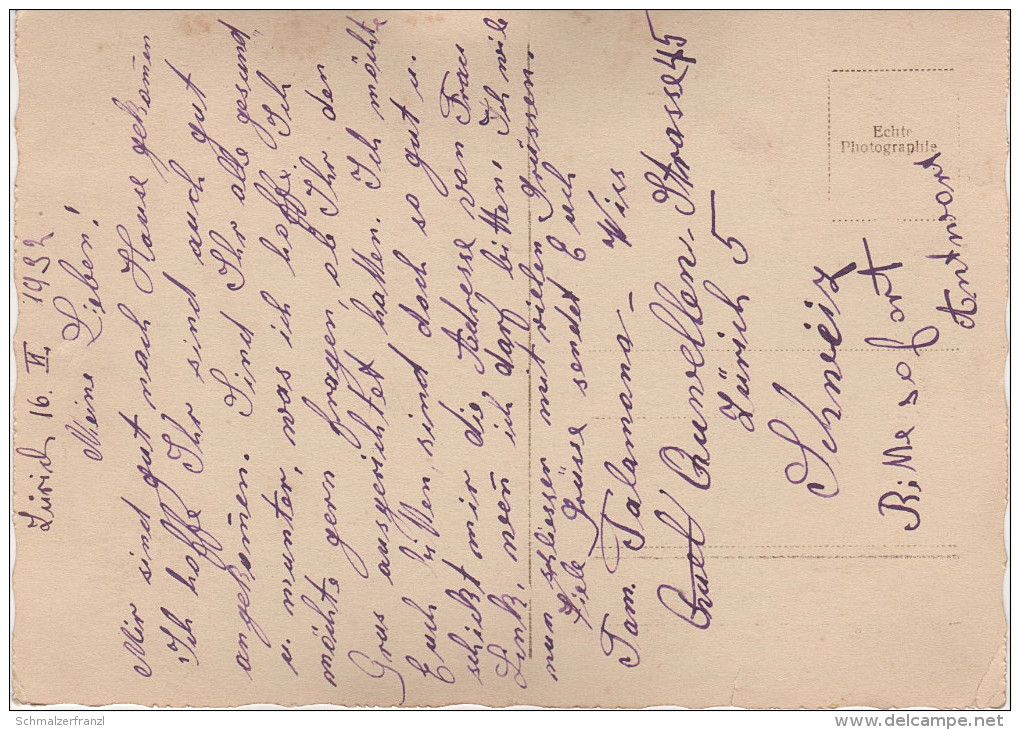 Zürich 16. VI. 1932
Meine Lieben!
Mir sind gut nach Hause gekomen
Ich hoffe Ihr sind auch gut
angekomen. Sind Ihr alle gesund
u. munter, was ich hoffe. Ich
möchte gern fragen, ob Ihr den
Grus ausgerichtet hatten. Ich möchte
Euch bitten, sind doch so gut u.
schickt mir die Adresse von Frau
Link, wen ich darf bitten. Ich wile
nun schliesser mit vielen Grüssen.
Viele Grüsse sendet Euch
Fam. Talamona-Wiss
Rudolf Strasse 45
Zürich 5
Schweiz
Bitte sofort
Antwort
Echte
Photographie
Schmalzerfranzl
www.delcampe.net